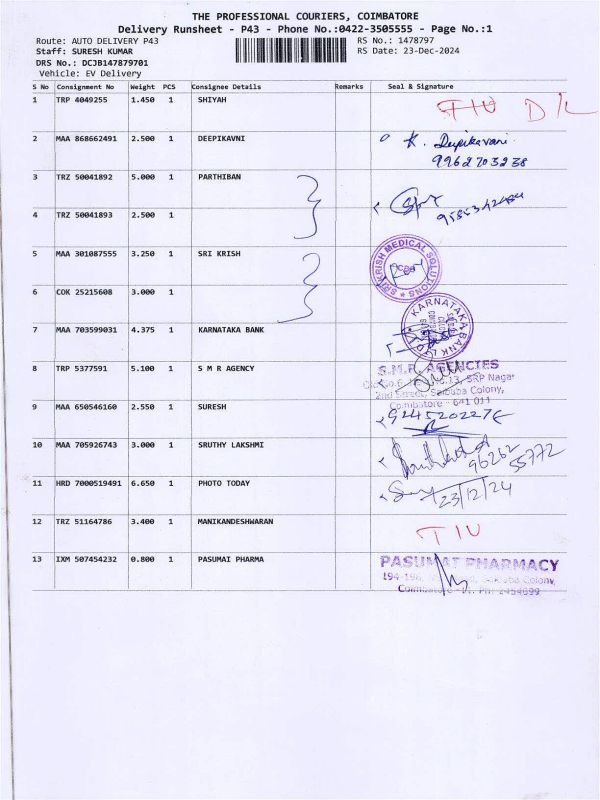 THE PROFESSIONAL COURIERS, COIMBATORE
Delivery Runsheet - P43 - Phone No.:0422-3505555 - Page No.:1
Route: AUTO DELIVERY P43 RS No.: 1478797
Staff: SURESH KUMAR RS Date: 23-Dec-2024
DRS No.: DCJB147879701
Vehicle: EV Delivery
S No Consignment No Weight PCS Consignee Details Remarks Seal & Signature
1 TRP 4049255 1.450 1 SHIYAH D/L
2 MAA 868662491 2.500 1 DEEPIKAVNI K. Deepikavani
9962703238
3 TRZ 50041892 5.000 1 PARTHIBAN
4 TRZ 50041893 2.500 1
5 MAA 301087555 3.250 1 SRI KRISH SRIKRISH MEDICAL SOLUTIONS
6 COK 25215608 3.000 1
7 MAA 703599031 4.375 1 KARNATAKA BANK KARNATAKA BANK
8 TRP 5377591 5.100 1 S M R AGENCY S.M.R. AGENCIES
SRP Nagar
2nd Street, Saibaba Colony,
Coimbatore - 641 011
9 MAA 650546160 2.550 1 SURESH
10 MAA 705926743 3.000 1 SRUTHY LAKSHMI 96262
55772
11 HRD 7000519491 6.650 1 PHOTO TODAY 23/12/24
12 TRZ 51164786 3.400 1 MANIKANDESHWARAN
13 IXM 507454232 0.800 1 PASUMAI PHARMA PASUMAI PHARMACY
Colony,